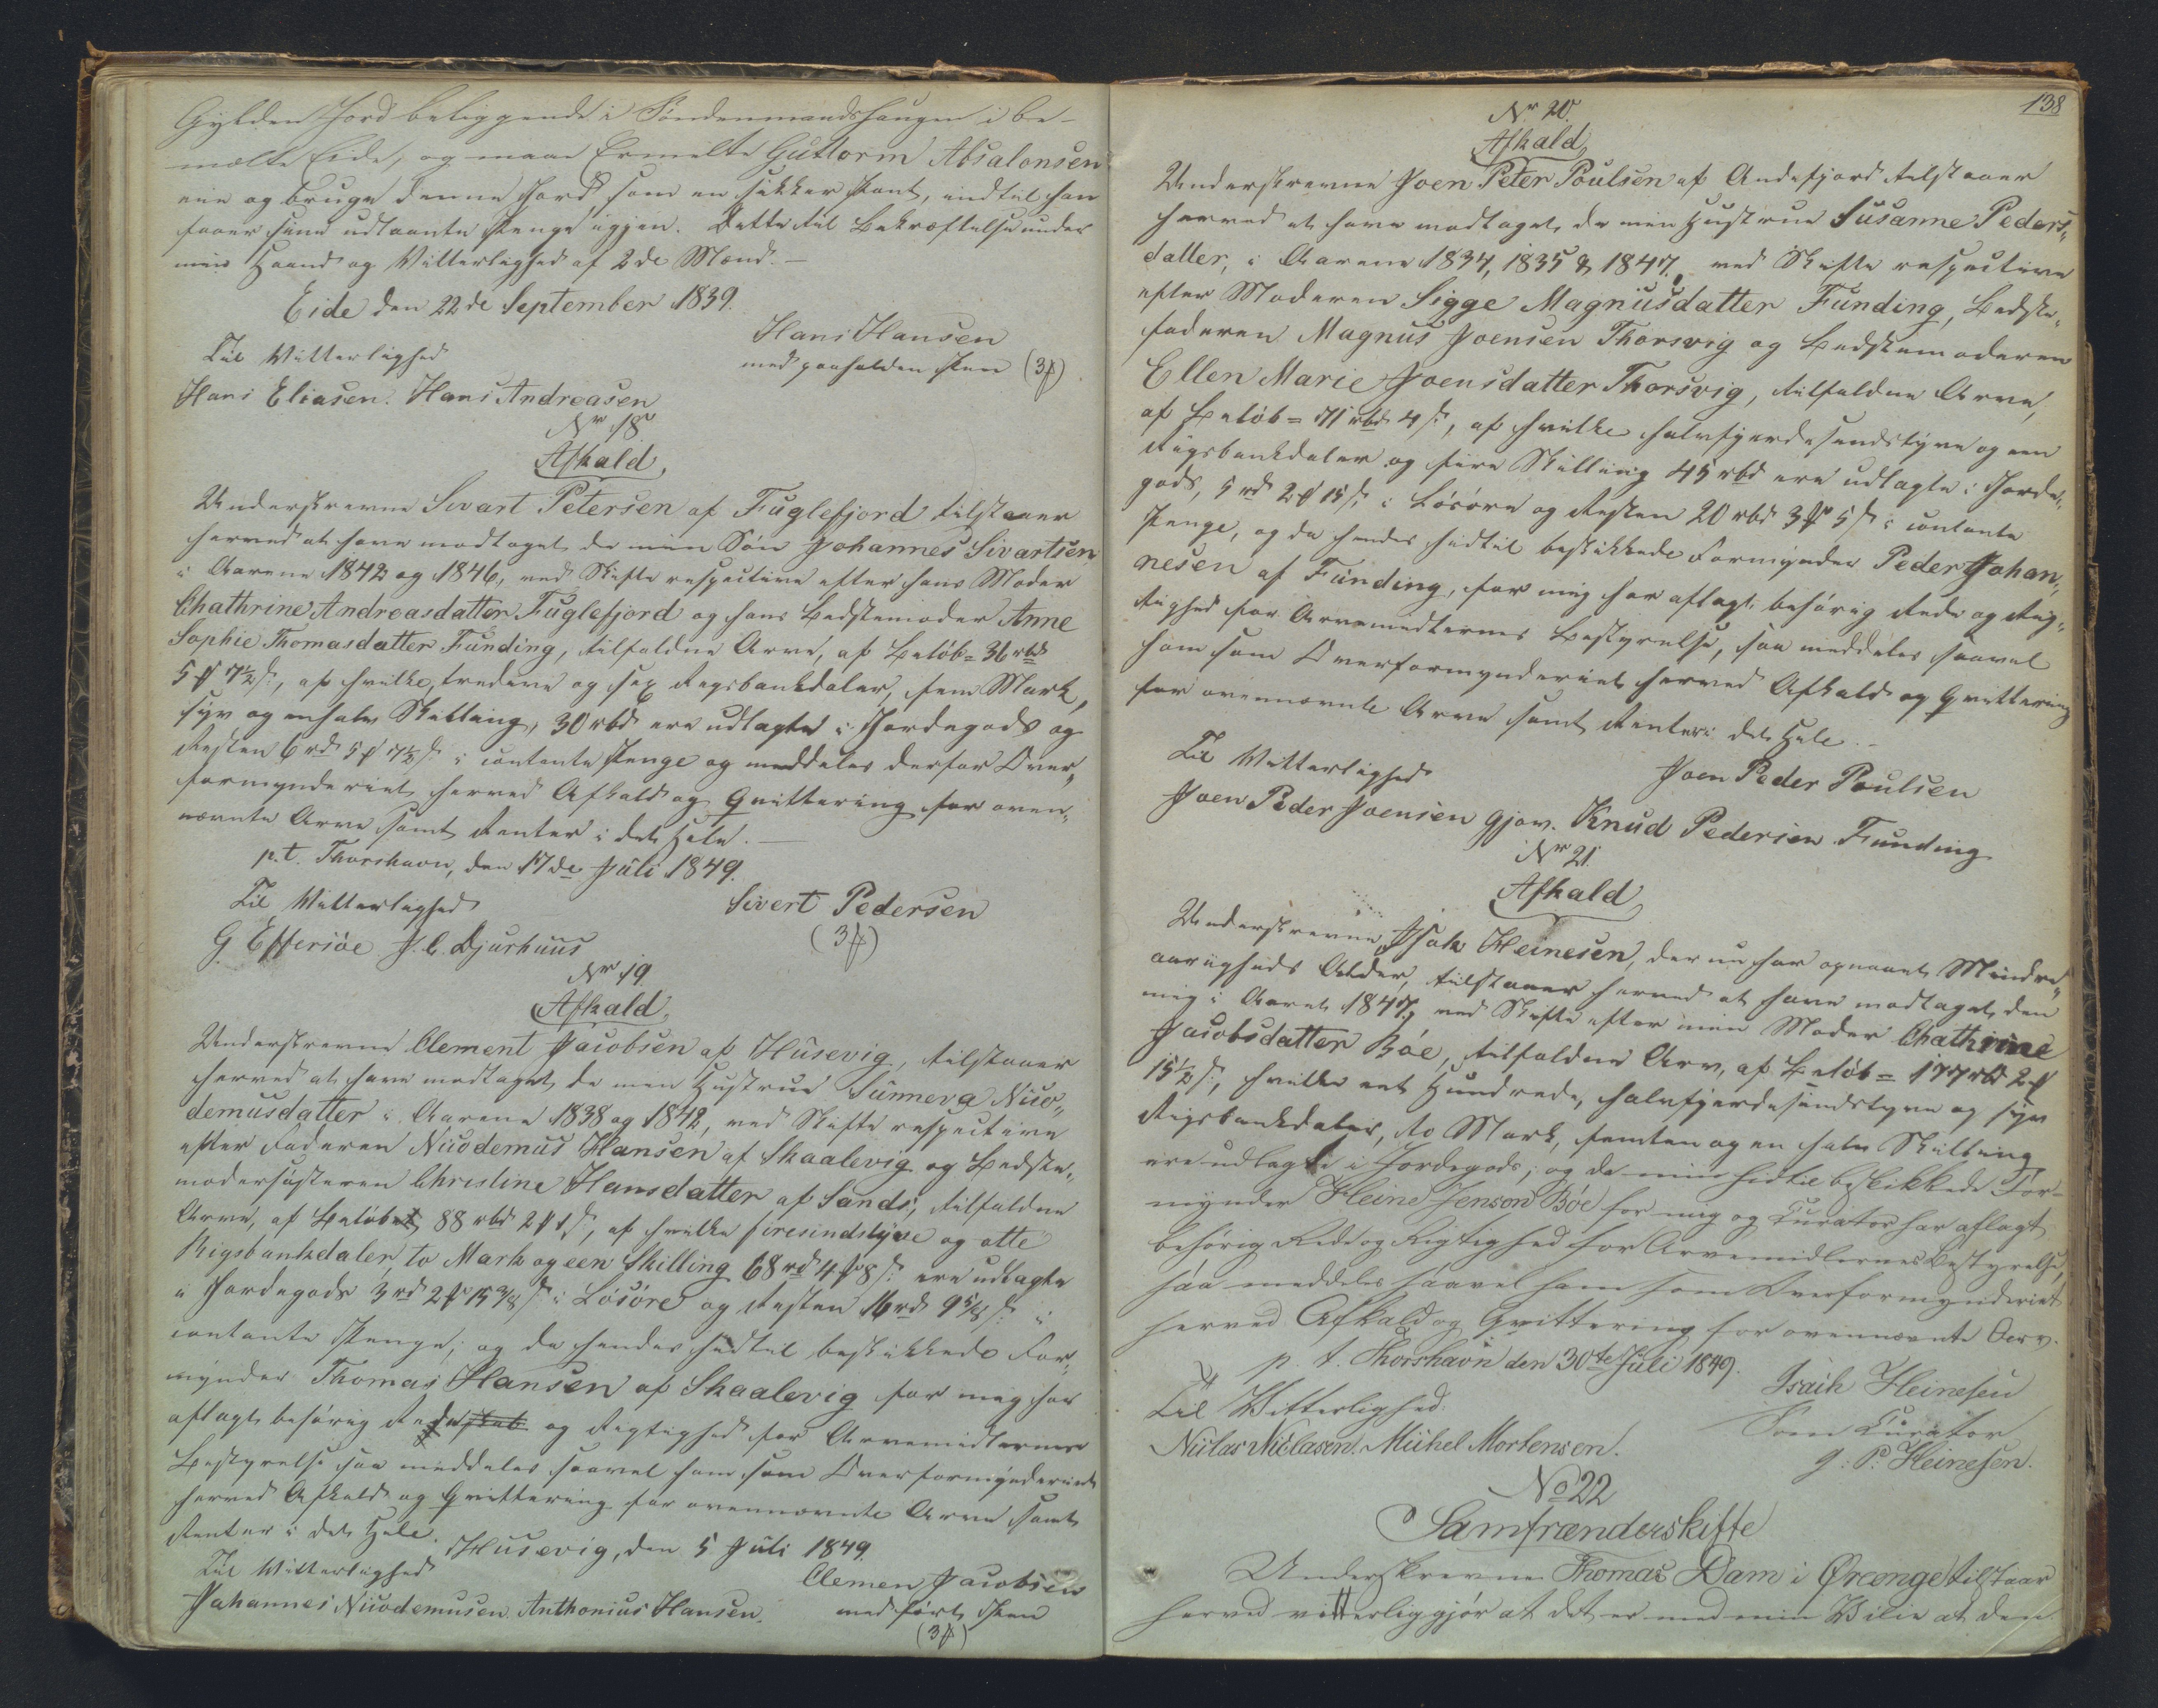 Gylden Jord beliggende i Sondenmandshaugen i be-
meldte Eide, og maae Ermelte Guttorm Absalonsen
eie og bruge denne Jord, som en sikker Pant, indtil han
faaer sine udlaante Penge igjen. Dette til Bekræftelse under
min Haand og Vitterlighed af 2de Mænd. –
Eide den 22de September 1839.
Hans Hansen
Til Vitterlighed
med paaholden Pen (3ß)
Hans Eliasen. Hans Andreasen
Nr 18
Afkald,
Underskrevne Sivart Petersen af Fuglefjord tilstaaer
herved at have modtaget de min Søn Johannes Sivartsen
i Aarene 1842 og 1846, ved Skifte respective efter hans Moder
Chathrine Andreasdatter Fuglefjord og hans Bedstemoder Anne
Sophie Thomasdatter Funding, tilfaldne Arve, af Beløb = 36 rbd
5 ₰ 7½ ß, af hvilke, tredive og sex Rigsbankdaler, fem Mark,
syv og enhalv Skilling, 30 rbd ere udlagte i Jordegods og
Resten 6 rd 5 ₰ 7½ ß i contante Penge og meddeles derfor Over„
formynderiet herved Afkald og Qvittering for oven„
nævnte Arve samt Renter i det Hele. –
p.t. Thorshavn, den 17de Juli 1849.
Til Vitterlighed
Sivert Pedersen
G. Effersøe J. C. Djurhuus
(3ß)
Nr 19
Afkald,
Underskrevne Clement Jacobsen af Husevig, tilstaaer
herved at have modtaget de min Hustrue Sunneva Nico„
demusdatter i Aarene 1838 og 1842, ved Skifte respective
efter Faderen Nicodemus Hansen af Skaalevig og Bedste„
modersøsteren Christine Hansdatter af Sand, tilfaldne
Arve, af Beløbet 88 rbd 2 ₰ 1 ß, af hvilke firesindstyve og otte
Rigsbankdaler, to Mark og een Skilling 68 rd 4 ₰ 8 ß ere udlagte
i Jordegods 3 rd 2 ₰ 15 3/8 ß i Løsøre og Resten 16 rd 9 5/8 ß i
contante Penge; og da hendes hidtil beskikkede For„
mynder Thomas Hansen af Skaalevig for meg har
aflagt behørig Rede og Rigtighed for Arvemidlernes
Bestyrelse saa meddeles saavel ham som Overformynderiet
herved Afkald og Qvittering for ovennævnte Arve samt
Renter i det Hele.
Husevig, den 5 Juli 1849.
Til Vitterlighed
Clemen Jacobsen
Johannes Nicodemusen. Anthonius Hansen.
med ført Pen
(3ß)
138
Nr 20.
Afkald,
Underskrevne Joen Peter Poulsen af Andefjord tilstaaer
herved at have modtaget, de min Hustrue Susanne Peders„
datter, i Aarene 1834, 1835 & 1847, ved Skifte respective
efter Moderen Sigge Magnusdatter Funding, Bedste„
faderen Magnus Joensen Thorsvig og Bedstemoderen
Ellen Marie Joensdatter Thorsvig, tilfaldne Arve,
af Beløb = 71 rbd 4 ß, af hvilke halvfjerdesindstyve og een
Rigsbankdaler og fire Skilling 45 rbd ere udlagte i Jorde„
gods, 5 rd 2 ₰ 15 ß i Løsøre og Resten 20 rbd 3 ₰ 5 ß i contante
Penge, og da hendes hidtil beskikkede Formynder Peder Johan„
nesen af Funding, for mig har aflagt behørig Rede og Rig„
tighed for Arvemidlernes Bestyrelse, saa meddeles saavel
ham som Overformynderiet herved Afkald og Qvittering
for ovennævnte Arve samt Renter i det Hele. –
Til Vitterlighed
Joen Peder Poulsen
Joen Peder Joensen Gjov. Knud Pedersen Funding
Nr 21.
Afkald
Underskrevne Isak Heinesen, der nu har opnaaet Mindre„
aarigheds Alder, tilstaaer herved at have modtaget, den
mig i Aaret 1847, ved Skifte efter min Moder Chathrine
Jacobsdatter Bøe, tilfaldne Arv, af Beløb = 177 rbd 2 ₰
15½ ß, hvilke eet Hundrede, halvfjerdesindstyve og syv
Rigsbankdaler, to Mark, femten og en halv Skilling
ere udlagte i Jordegods; og da min hidtil beskikkede For-
mynder Heine Jenson Bøe for mig og Curator har aflagt
behørig Rede og Rigtighed for Arvemidlernes Bestyrelse,
saa meddeles saavel ham som Overformynderiet
herved Afkald og Qvittering for ovennævnte Arv.
p. t. Thorshavn den 30te Juli 1849.
Isaih Heinesen
Til Vitterlighed.
Som Curator
Niclas Niclasen. Michel Mortensen.
J. P. Heinesen.
No 22
Samfrænderskifte
Underskrevne Thomas Dam i Ørænge tilstaar
herved vitterliggjør at det er med min Vilie at den